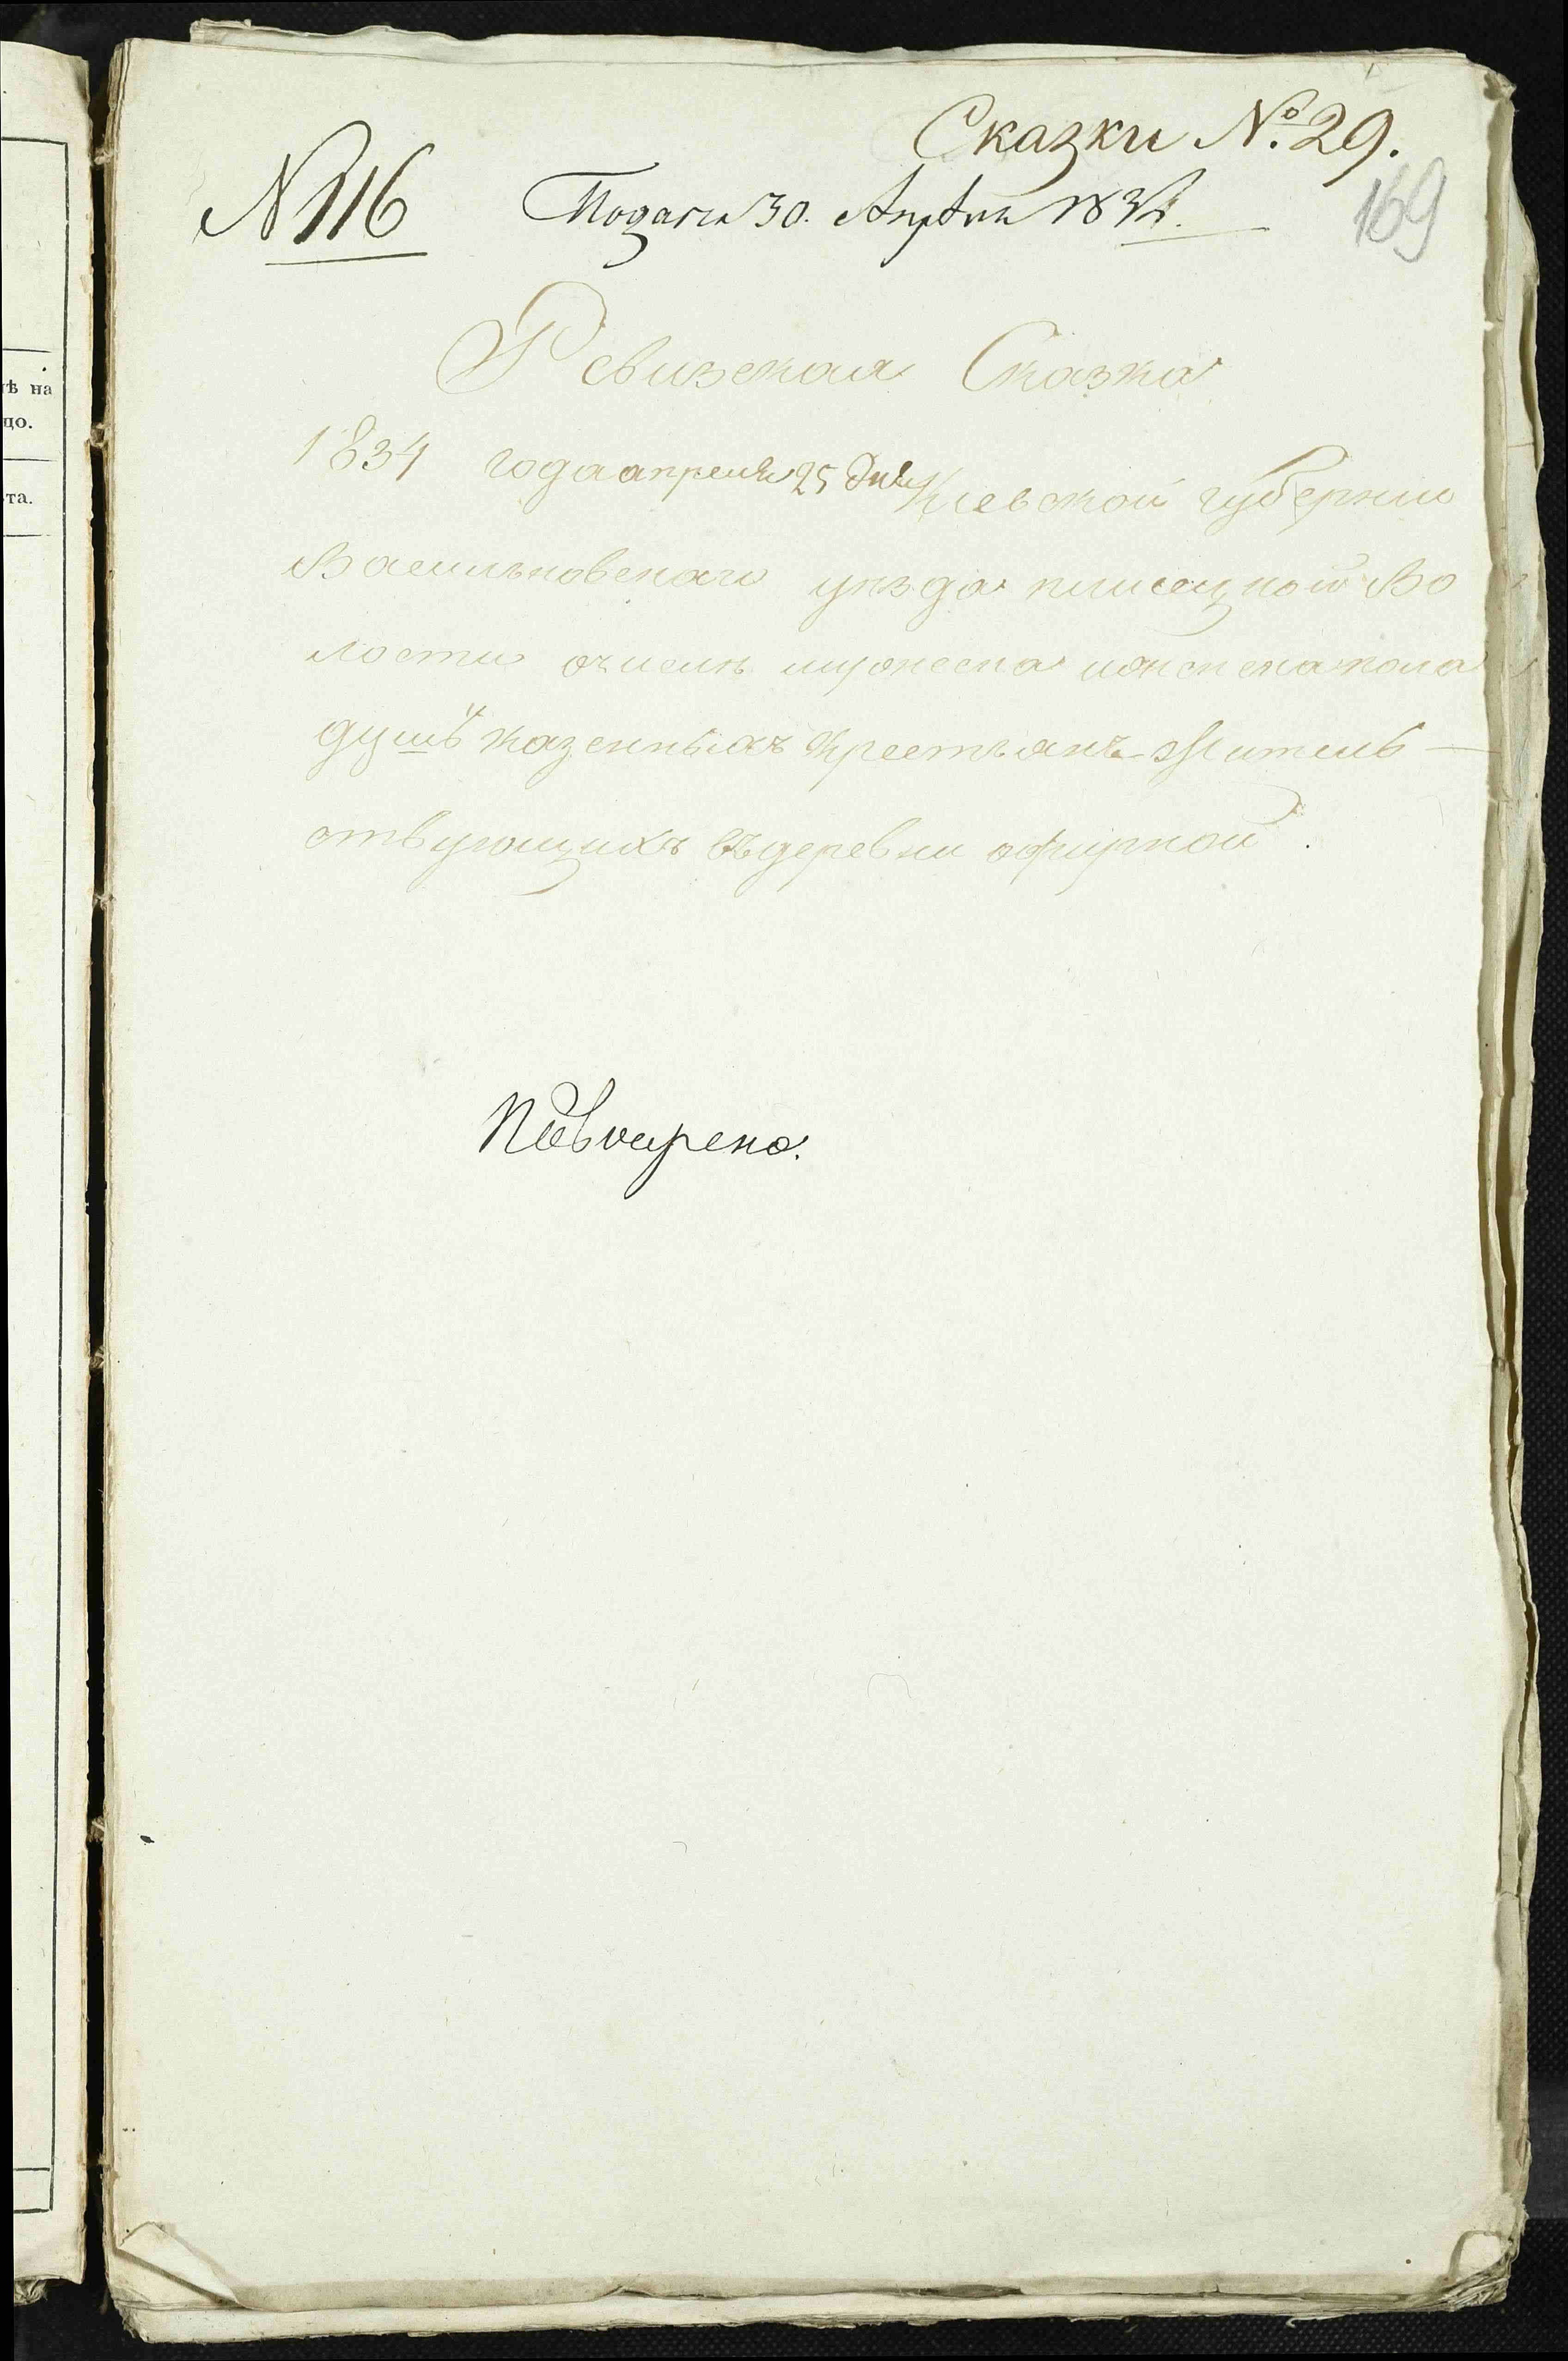 Сказки №. 29.
N 116
Подана 30. Апрѣля 1834.
169
Ревизская Сказка
1834 года апреля 25 дня Киевской губернии
Васильковскаго уезда плисецкой Во
лости очисле мужеска иженска пола
душъ казенныхъ крестьянъ Житель
ствующихъ въдеревни офирной.
ѣ на
цо.
та.